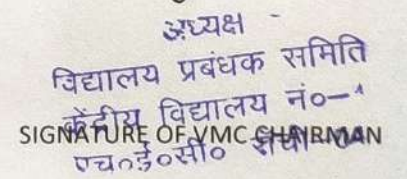 अध्यक्ष -
विद्यालय प्रबंधक समिति
केंद्रीय विद्यालय नं०-१
SIGNATURE OF VMC CHAIRMAN
एच०ई०सी० राँची